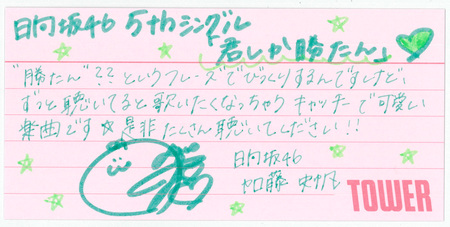 日向坂46 5thシングル
「君しか勝たん」
"勝たん"??というフレーズでびっくりするんですけど、
ずっと聴いてると歌いたくなっちゃうキャッチーで可愛い
楽曲です☆是非たくさん聴いてください!!
日向坂46
加藤 史帆
TOWER